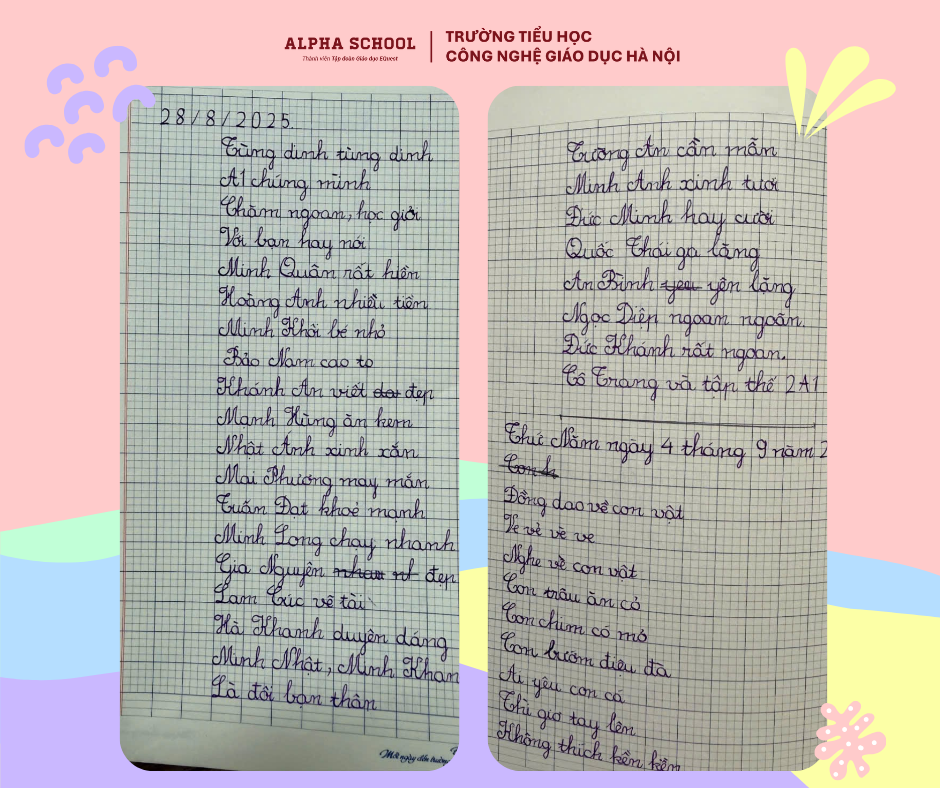 ALPHA SCHOOL
Thành viên Tập đoàn Giáo dục EQuest
TRƯỜNG TIỂU HỌC
CÔNG NGHỆ GIÁO DỤC HÀ NỘI
28/8/2025.
Tùng dinh tùng dinh
A1 chúng mình
Chăm ngoan, học giỏi
Với bạn hay nói
Minh Quân rất hiền
Hoàng Anh nhiều tiền
Minh Khôi bé nhỏ
Bảo Nam cao to
Khánh An viết đẹp
Mạnh Hùng ăn kem
Nhật Ánh xinh xắn
Mai Phương may mắn
Tuấn Đạt khoẻ mạnh
Minh Long chạy nhanh
Gia Nguyên đẹp
Lam Trúc vẽ tài
Hà Khanh duyên dáng
Minh Nhật, Minh Khan
Là đôi bạn thân
Một ngày đến trường
Trường An cần mẫn
Minh Anh xinh tươi
Đức Minh hay cười
Quốc Thái ga lăng
An Bình yên lặng
Ngọc Diệp ngoan ngoãn.
Đức Khánh rất ngoan.
Cô Trang và tập thể 2A1
Thứ Năm ngày 4 tháng 9 năm 2
Con
Đồng dao về con vật
Ve vẻ vè ve
Nghe vè con vật
Con trâu ăn cỏ
Con chim có mỏ
Con bướm điệu đà
Ai yêu con cá
Thì giơ tay lên
Không thích kền kền